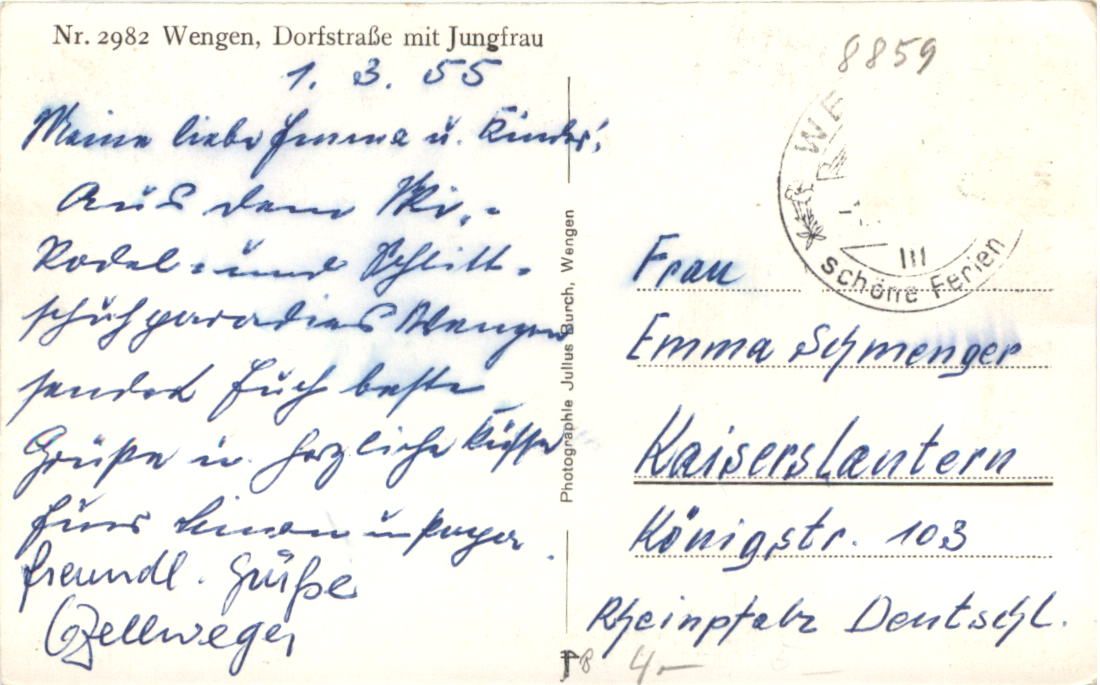 Nr. 2982 Wengen, Dorfstraße mit Jungfrau
1. 3. 55
Meine liebe Emma u. Kinder!
Aus dem Ski-,
Rodel- und Schlitt-
schuhparadies Wengen
sendet Euch beste
Grüße u. herzliche Küsse
Euer u. Papa
freundl. Grüße
Zellweger
Photographie Julius Burch, Wengen
8859
WE
III
schöne Ferien
Frau
Emma Schmenger
Kaiserslautern
Königstr. 103
Rheinpfalz Deutschl.
4.-